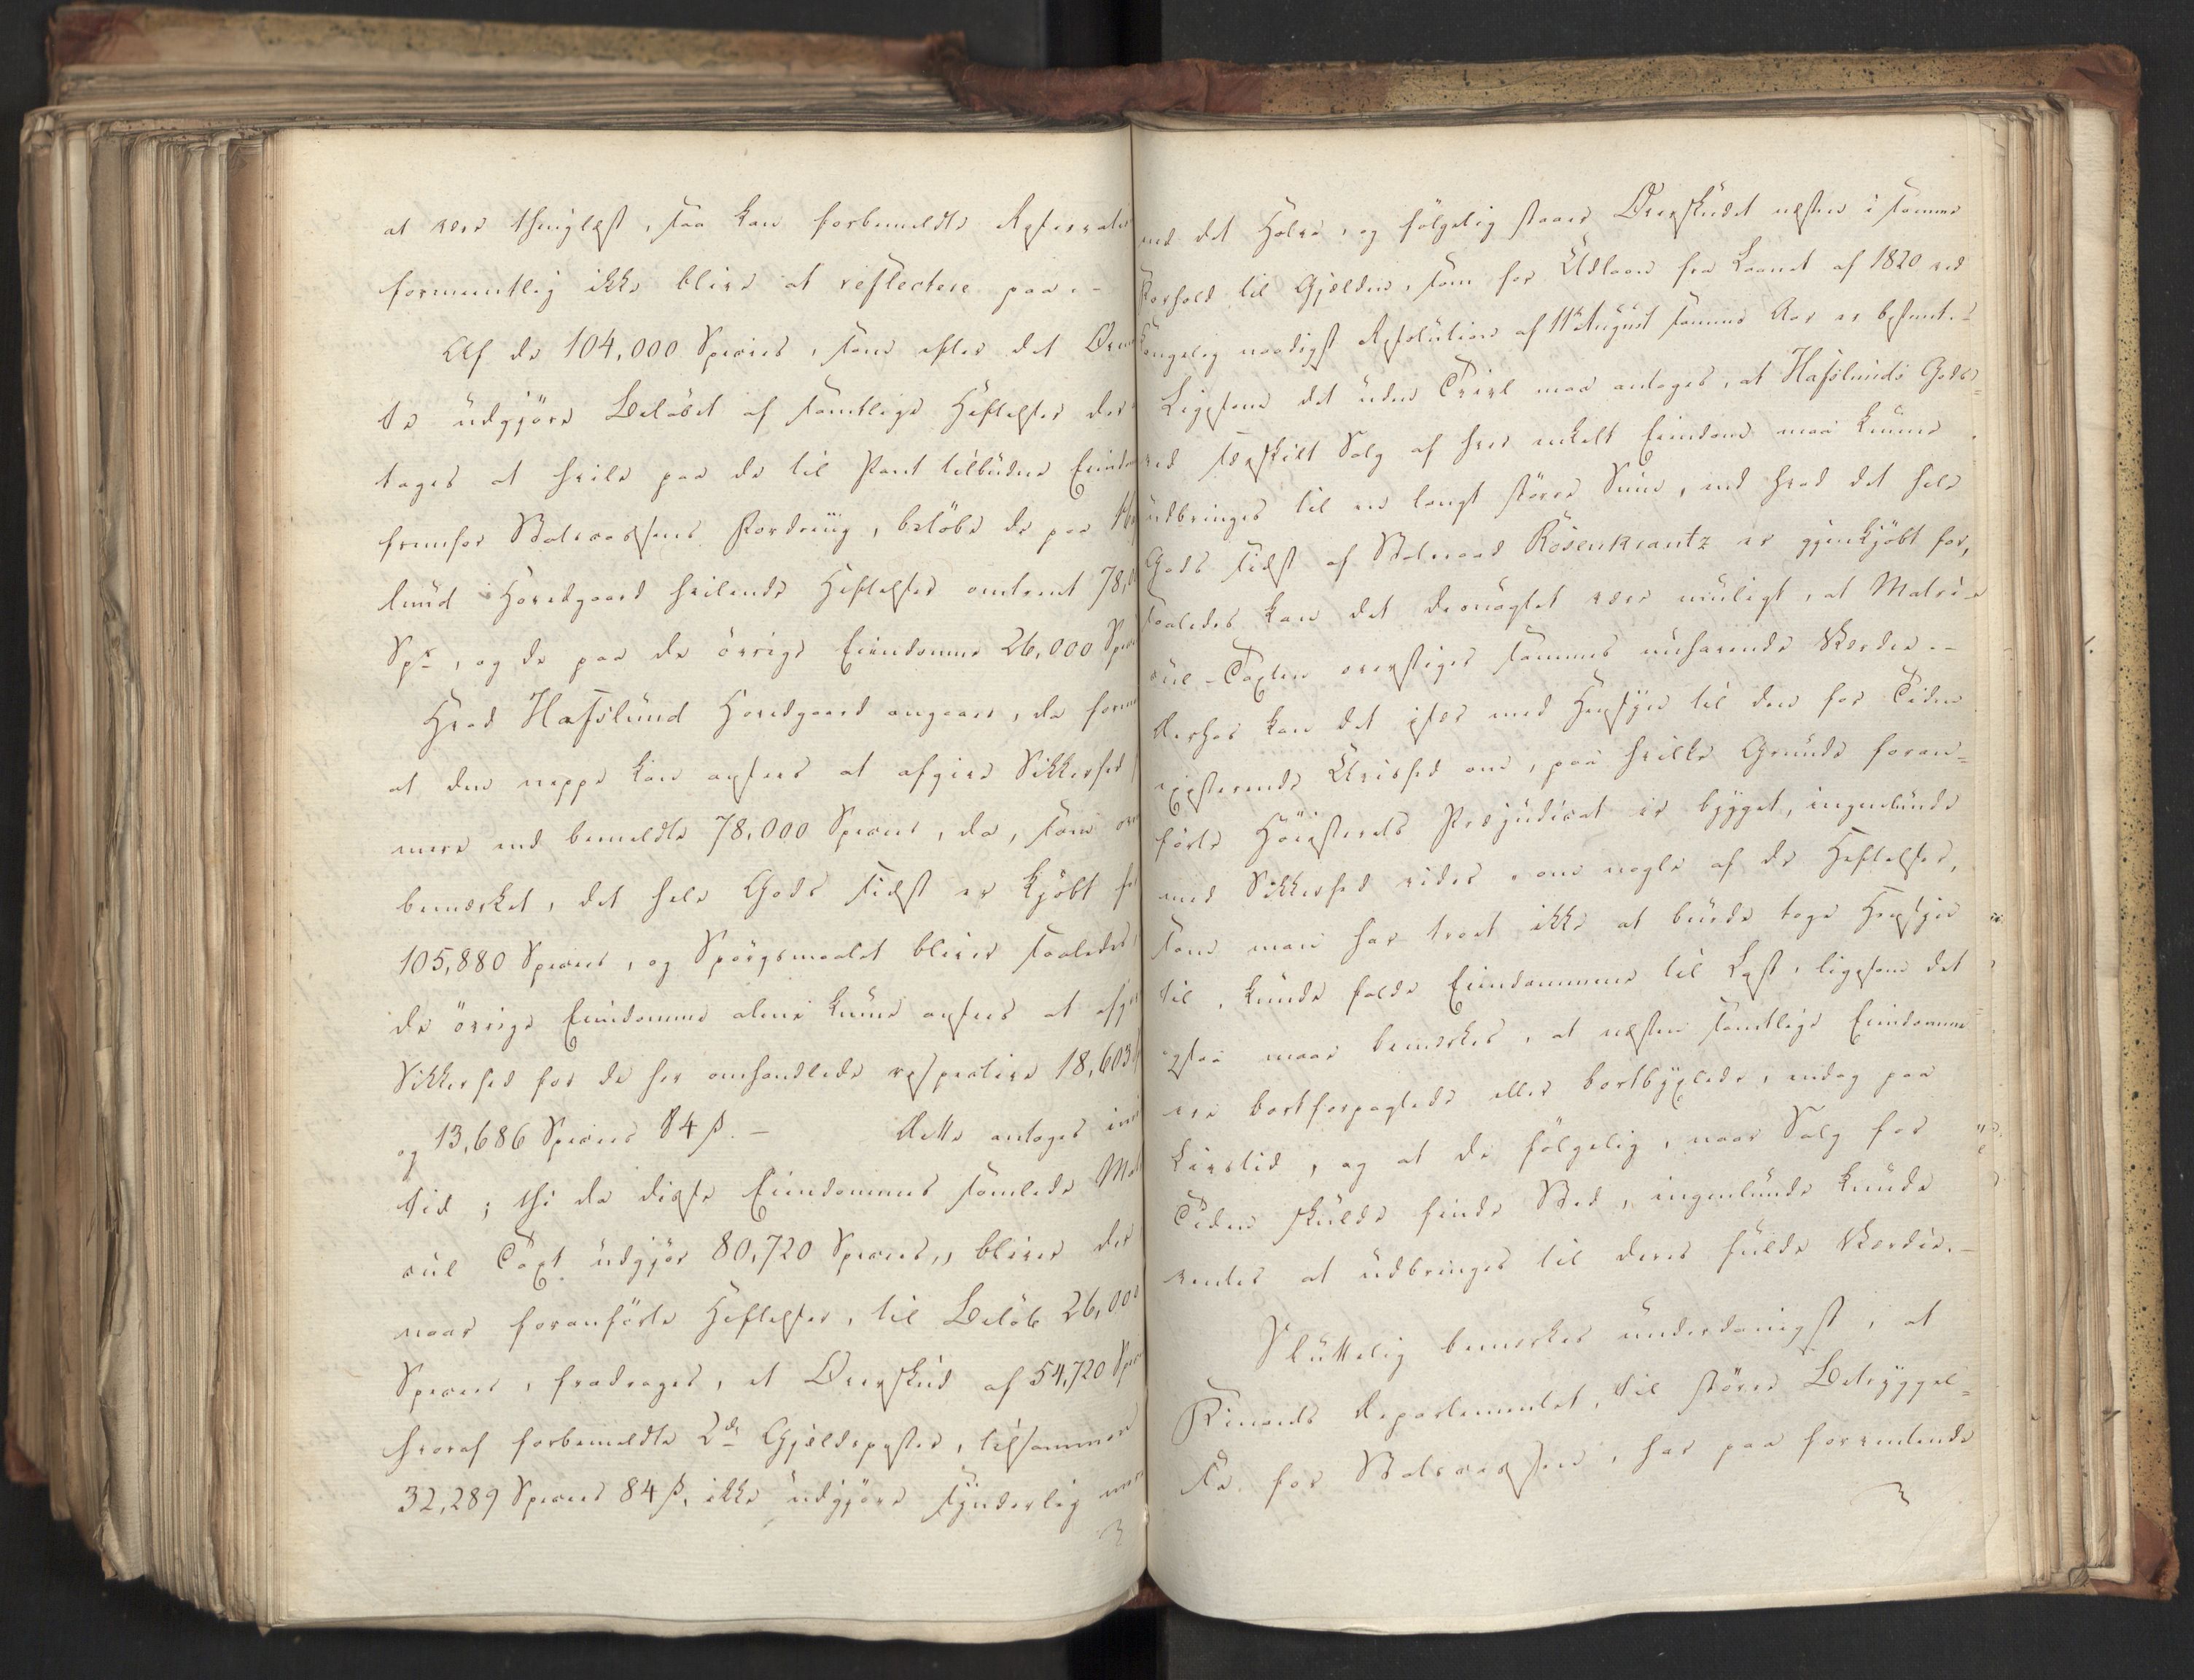 at være thinglæst, saa kan forbemeldte Reservation
formeentlig ikke blive at reflectere paa. -
Af de 104,000 Species, som efter det
te udgjöre Belöbet af samtlige Heftelser der
tages at hvile paa de til Pant tilbudne
fremfor Statscassens Fordring, belöbe de paa
lund Hovedgaard hvilende Heftelser omtrent 78,0
Spr, og de paa de övrige Eiendomme 26,000
Hvad Hafslund Hovedgaard angaaer, da
at den neppe kan ansees at afgive Sikkerhed
mere end bemeldte 78,000 Species, da, som
bemærket, det hele Gods sidst er kjöbt for
105,880 Species, og Spörgsmaalet bliver saaledes,
de övrige Eiendomme alene kunne ansees at
Sikkerhed for de her omhandlede respective 18,603
og 13,686 Species 84 ß. - Dette antages
tid; thi da disse Eiendommes samlede
cul Taxt udgjör 80,720 Species, bliver der
naar foranförte Heftelser, til Belöb 26,000
Species, fradrages, et Overskud af 54,720
hvoraf forbemeldte 2de Gjeldsposter, tilsammen
32,289 Species 84 ß, ikke udgjöre synderlig
end det Halve, og fölgelig staaer Overskudet næsten i samme
Forhold til Gjelden, som for Udlaan fra Laanet af 1820 ved
Kongelig naadigst Resolution af 11te August samme Aar er bestemt. -
Ligesom det uden Tvivl maa antages, at Hafslunds Gods
ved særskilt Salg af hver enkelt Eiendom maa kunne
udbringes til en langt större Sum, end hvad det hele
Gods sidst af Statsraad Rosenkrantz er gjenkjöbt for,
saaledes kan det desuagtet være muligt, at Matri-
cul-Taxten overstiger sammes nuhavende Værdie. -
Derhos kan det især med Hensyn til den for Tiden
existerende Uvished om, paa hvilke Grunde foran-
förte Höiesterets Præjudicat er bygget, ingenlunde
med Sikkerhed vides, om nogle af de Heftelser,
som man har troet ikke at burde tage Hensyn
til, kunde falde Eiendommene til Last, ligesom det
ogsaa maae bemærkes, at næsten samtlige Eiendomme
ere bortforpagtede eller bortbyxlede, endog paa
Livstid, og at de fölgelig, naar Salg for
Tiden skulde finde Sted, ingenlunde kunde
ventes at udbringes til deres fulde Værdie. -
Sluttelig bemærkes underdanigst, at
Finants Departementet, til större Betryggel-
se for Statscassen, har paa forventende